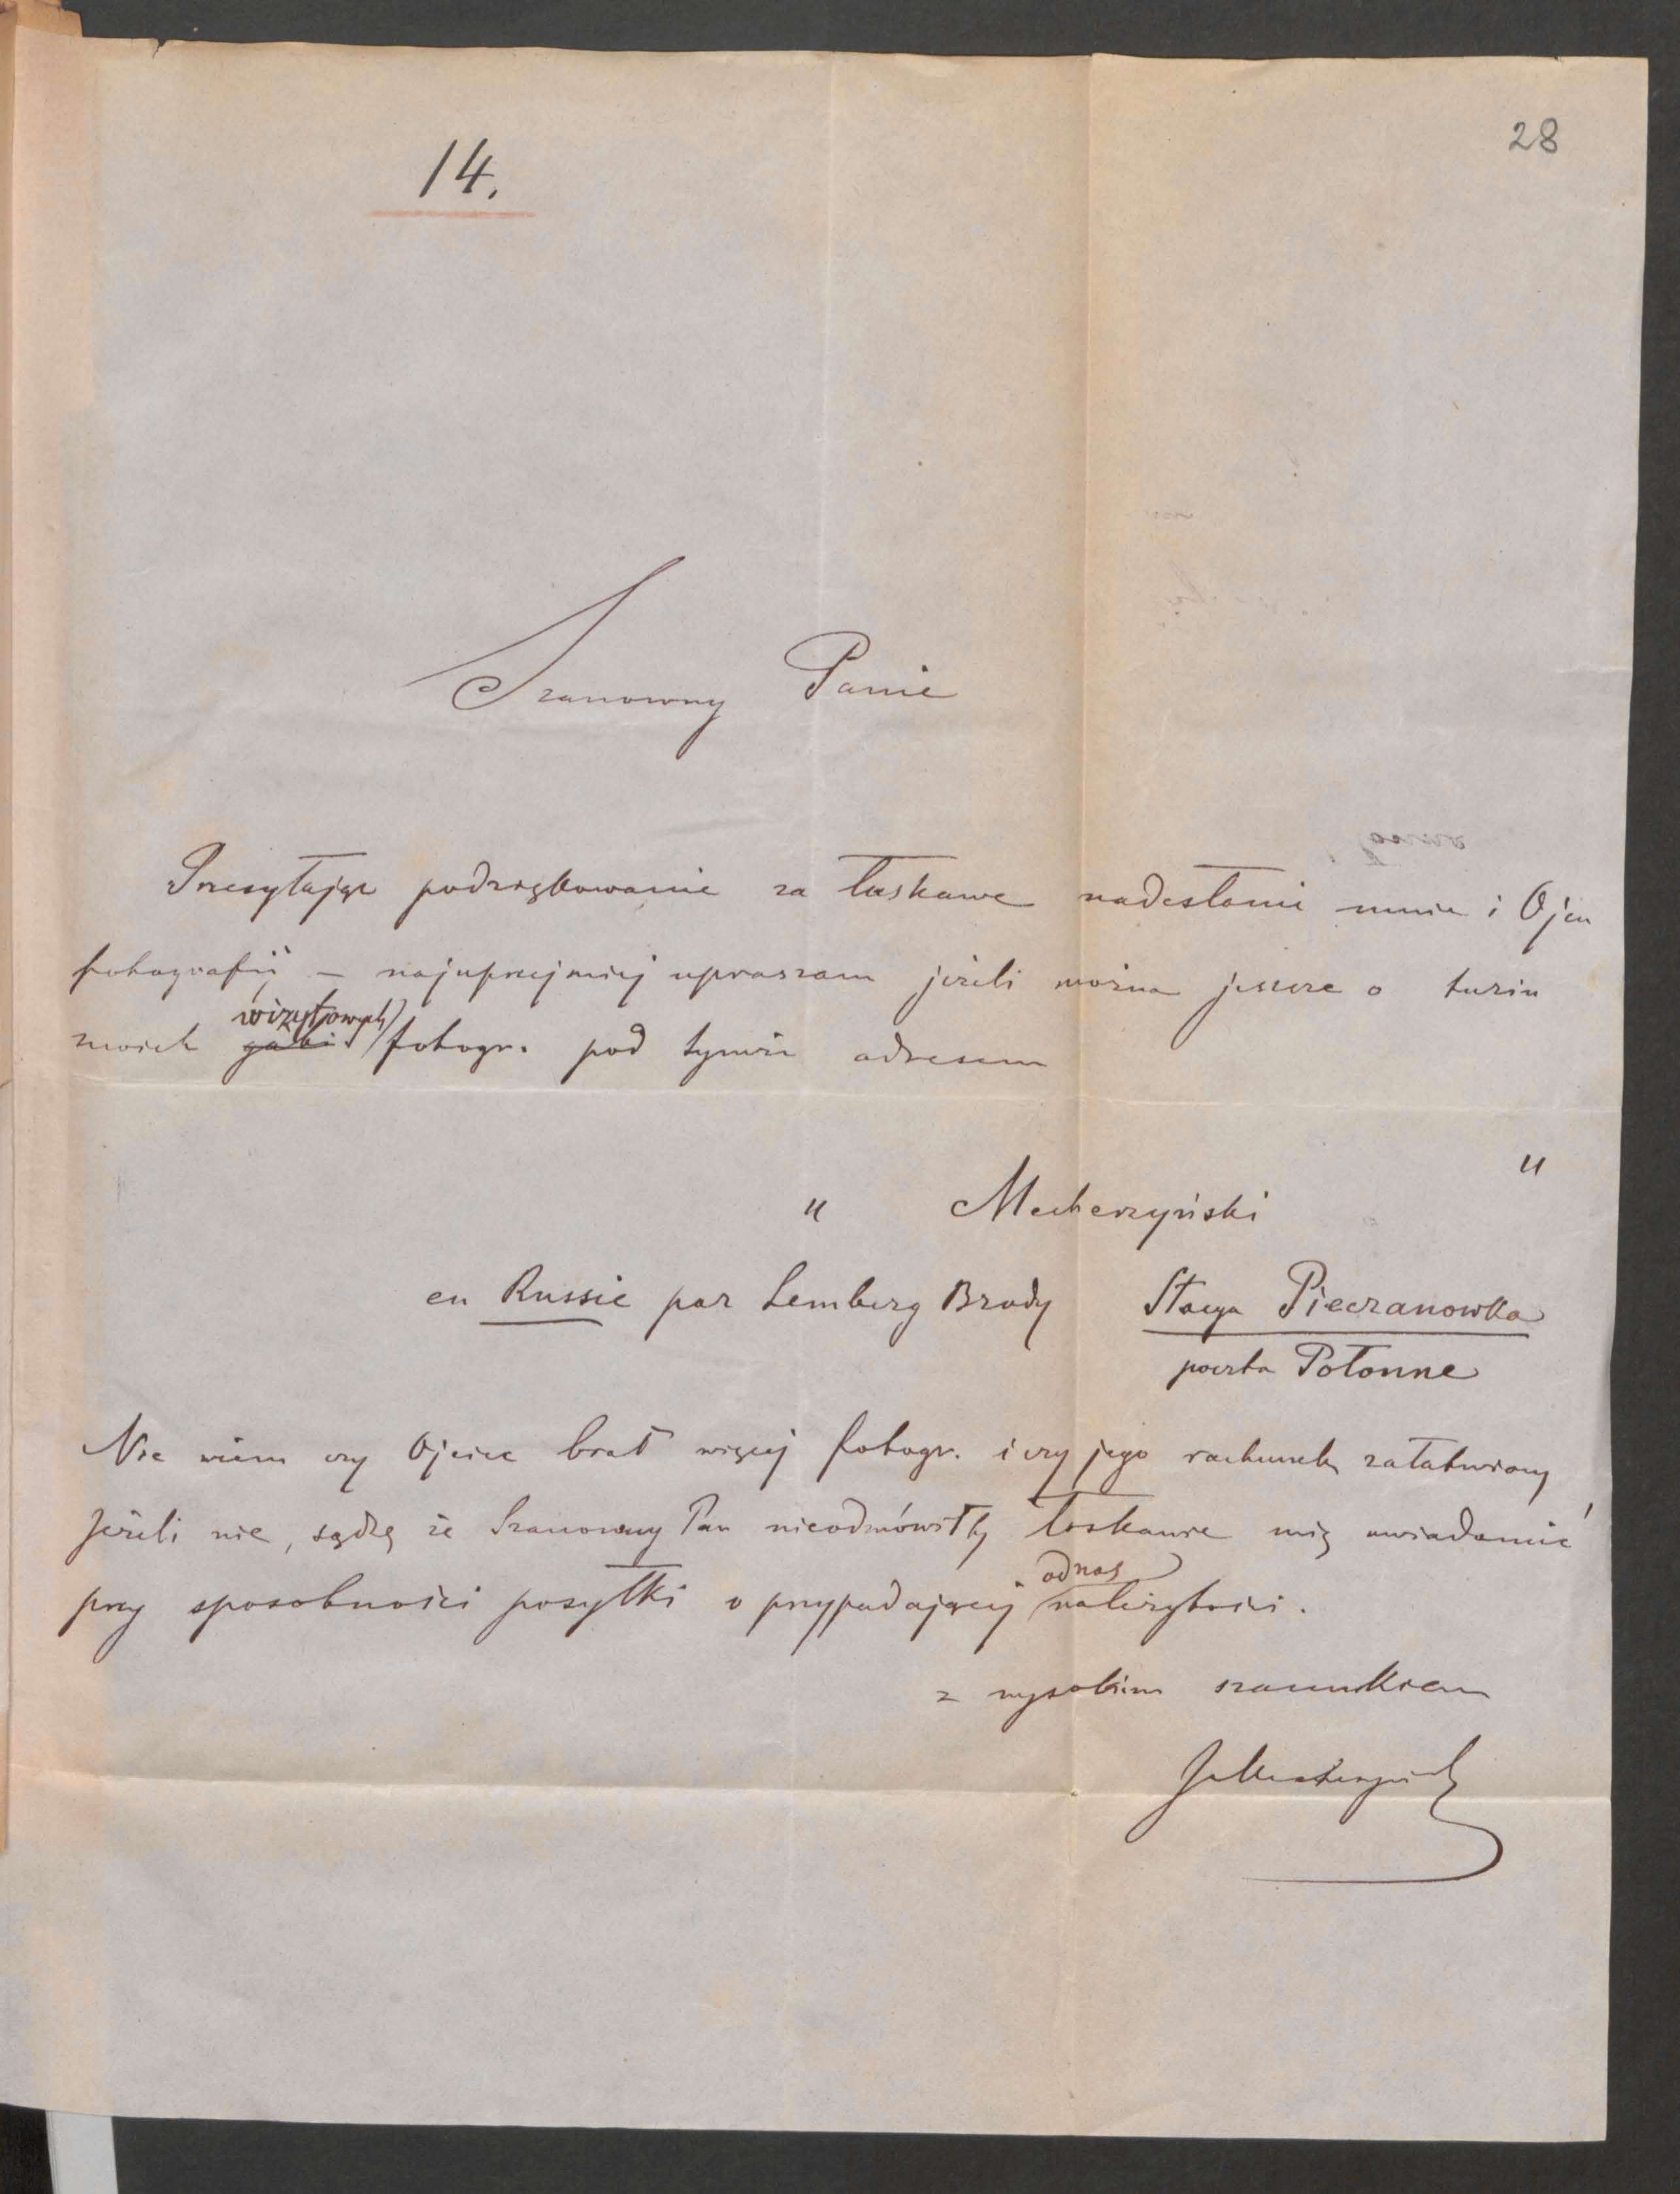 28
14.
Szanowny Panie
Przesyłając podziękowanie za łaskawe nadesłanie mnie i Ojcu
fotografij – najuprzejmiej upraszam jeżeli można jeszcze o tuzin
wizytowych
moich gabi fotogr. pod tymże adresem
" Mecherzyński "
en Russie par Lemberg Brody Stacya Pieczanowka
poczta Połonne
Nie wiem czy Ojciec brał więcej fotogr. i czy jego rachunek załatwiony
Jeżeli nie, sądzę że Szanowny Pan nieodmówiłby łaskawie mię uwiadomić
od nas
przy sposobności posyłki o przypadającej należytości.
z wysokim szacunkiem
JMecherzyński